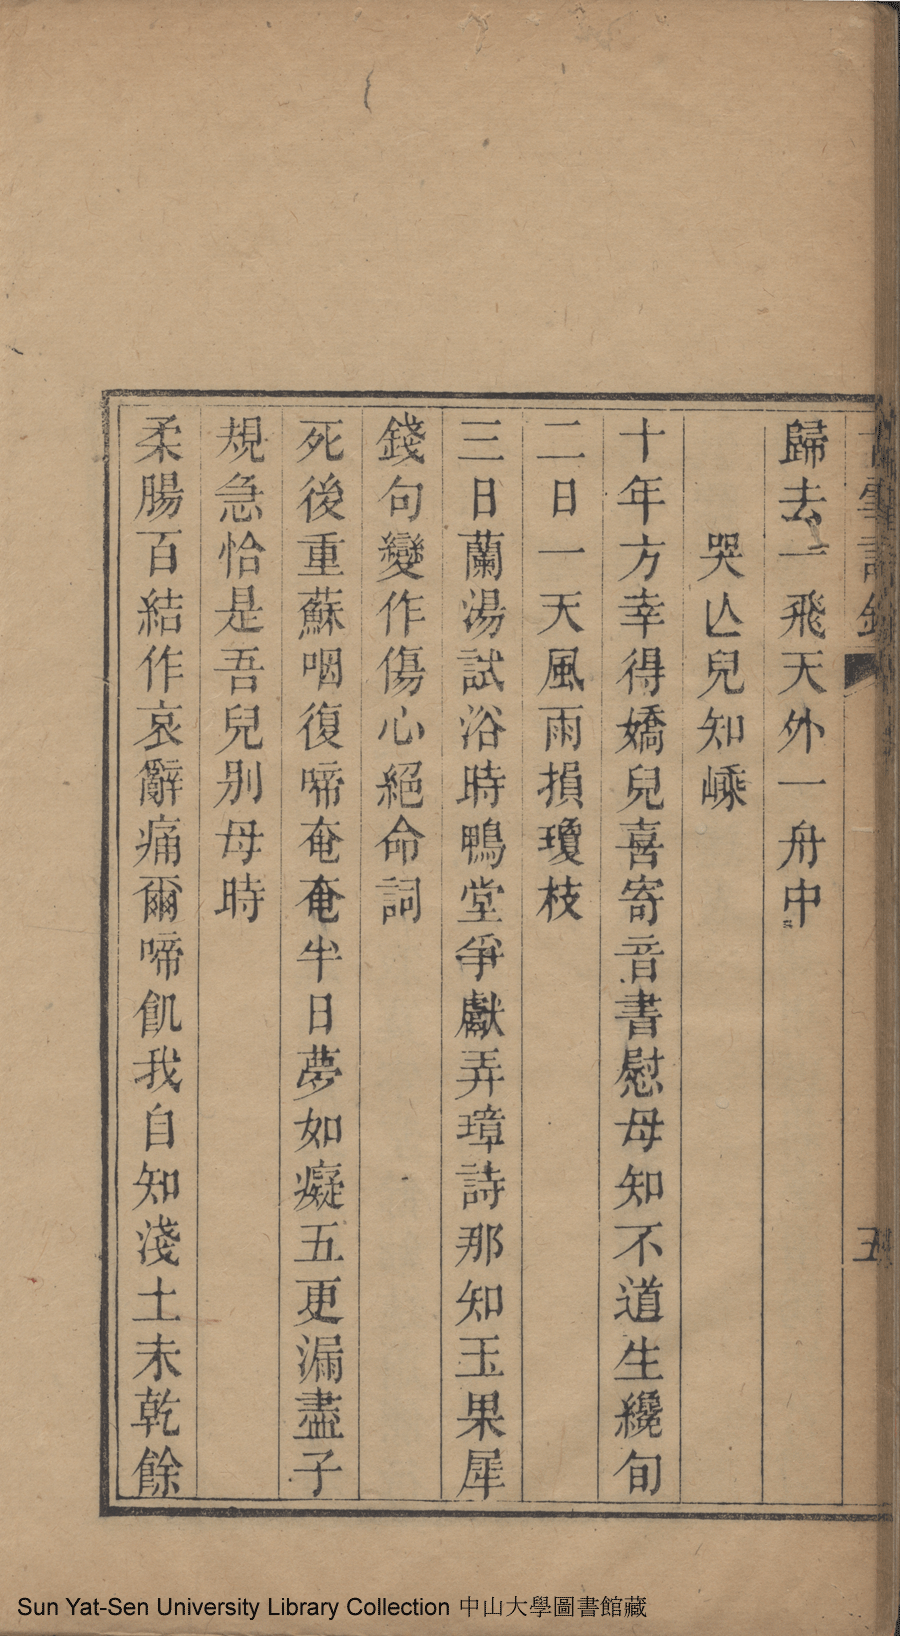 雪詩鈔
五
歸去一飛天外一舟中
哭亾兒知嵊
十年方幸得嬌兒喜寄音書慰母知不道生纔旬
二日一天風雨損瓊枝
三日蘭湯試浴時鴨堂爭獻弄璋詩那知玉果犀
錢句變作傷心絕命詞
死後重蘇咽復啼奄奄半日夢如癡五更漏盡子
規急恰是吾兒别母時
柔腸百結作哀辭痛爾啼飢我自知淺土未乾餘
Sun Yat-Sen University Library Collection 中山大學圖書館藏